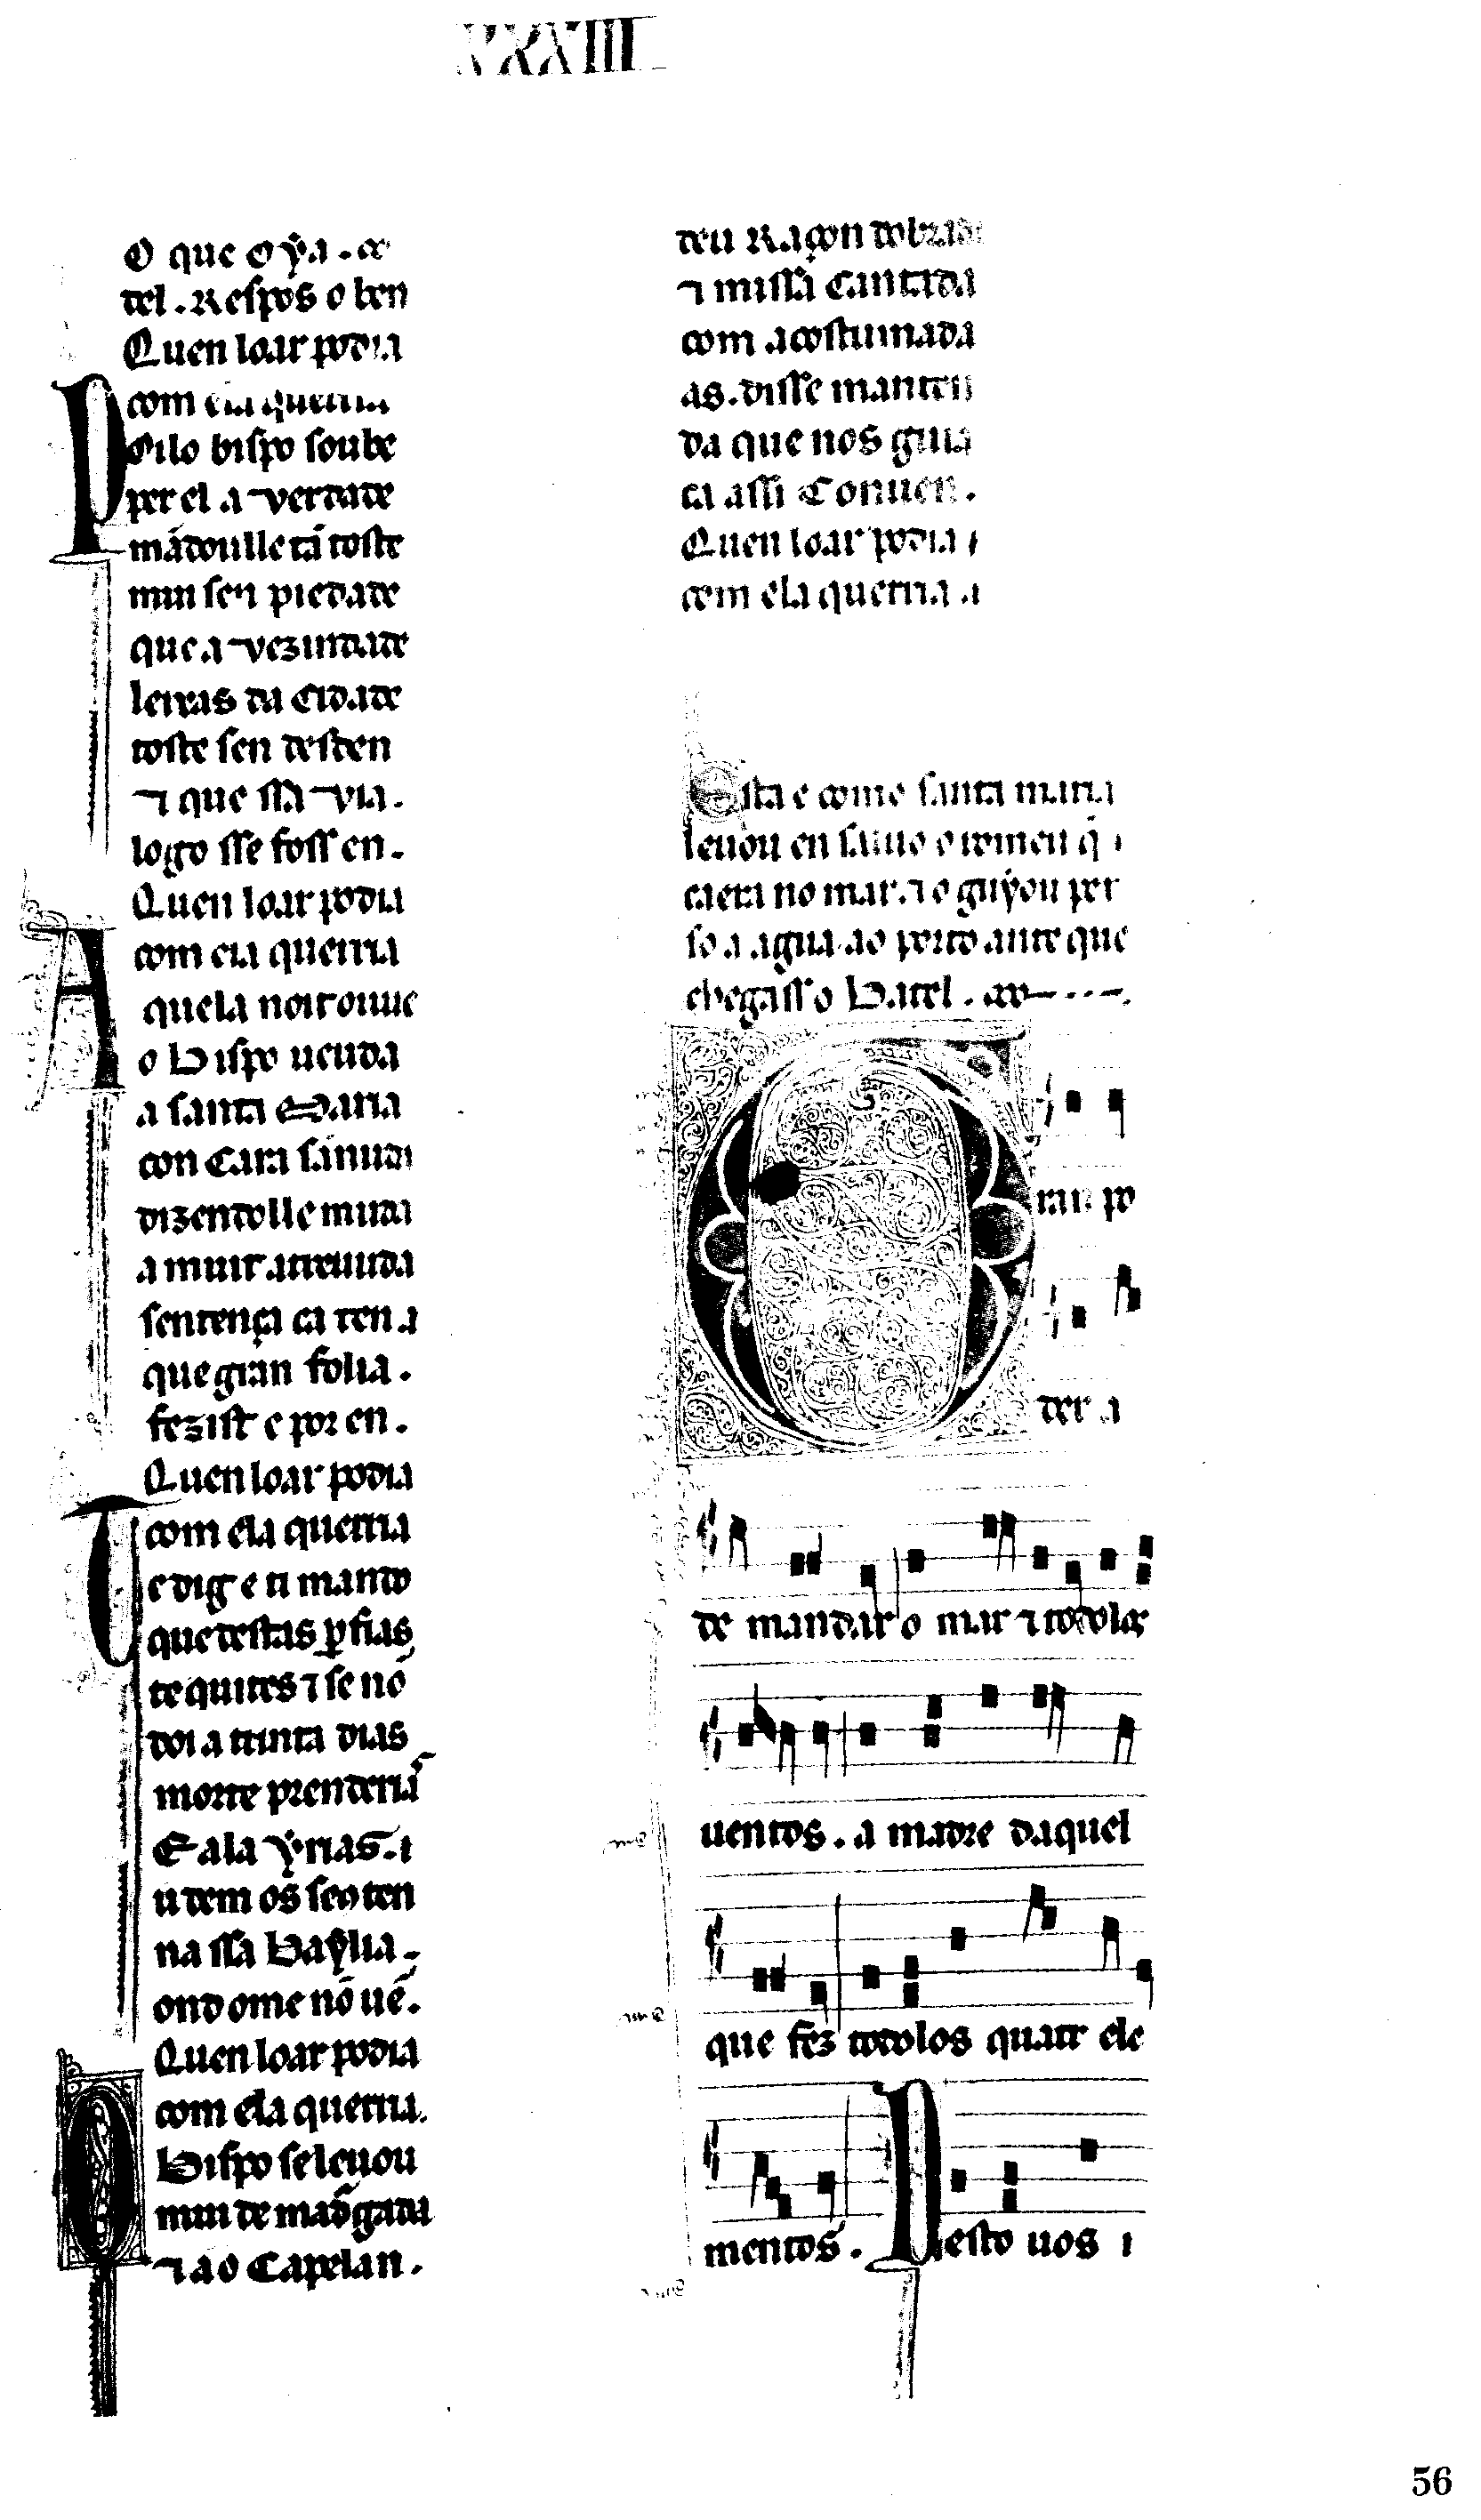 XXXIII
O que oỹa . e
del . Respos o ben
Quen loar podia
com ela querria
Poilo bispo soube
per el a uerdade
mãdoulle tã toste
mui sen piedade
que a uezĩidade
leixas da Cidade
toste sen desden
⁊ que ssa uia .
logo sse foss en .
Quen loar podia
com ela querria
Aquela noit ouue
o Bispo ueuda
a santa Maria
con Cara sannuda
dizendolle muda
a muit atreuuda
sentença ca ten a
que gran folia .
fezist e por en .
Quen loar podia
com ela querria
Te dig e ti mando
que destas ꝑfias
te quites ⁊ se nõ
doi a trinta dias
morte prenderias
E ala yrias . u
u dem os seo ten
na ssa Baylia .
ond ome nõ uẽ .
Quen loar podia
com ela querria .
O Bispo se leuou
mui de madgada
⁊ ao Capelan .
deu Raçon dobrada
⁊ missa Cantada
com acostumada
as . disse manten
da que nos guia
ca assi Conuen .
Quen loar podia
com ela querria a
Esta e como santa maria
leuou en saluo o romeu q̃
caera no mar . ⁊ o guyou per
so a agua ao porto ante que
chegass o Batel .
Gran po
der a
de mandar o mar ⁊ todolos
uentos . a madre daquel
que fez todolos quatr ele
mentos . Desto uos
56